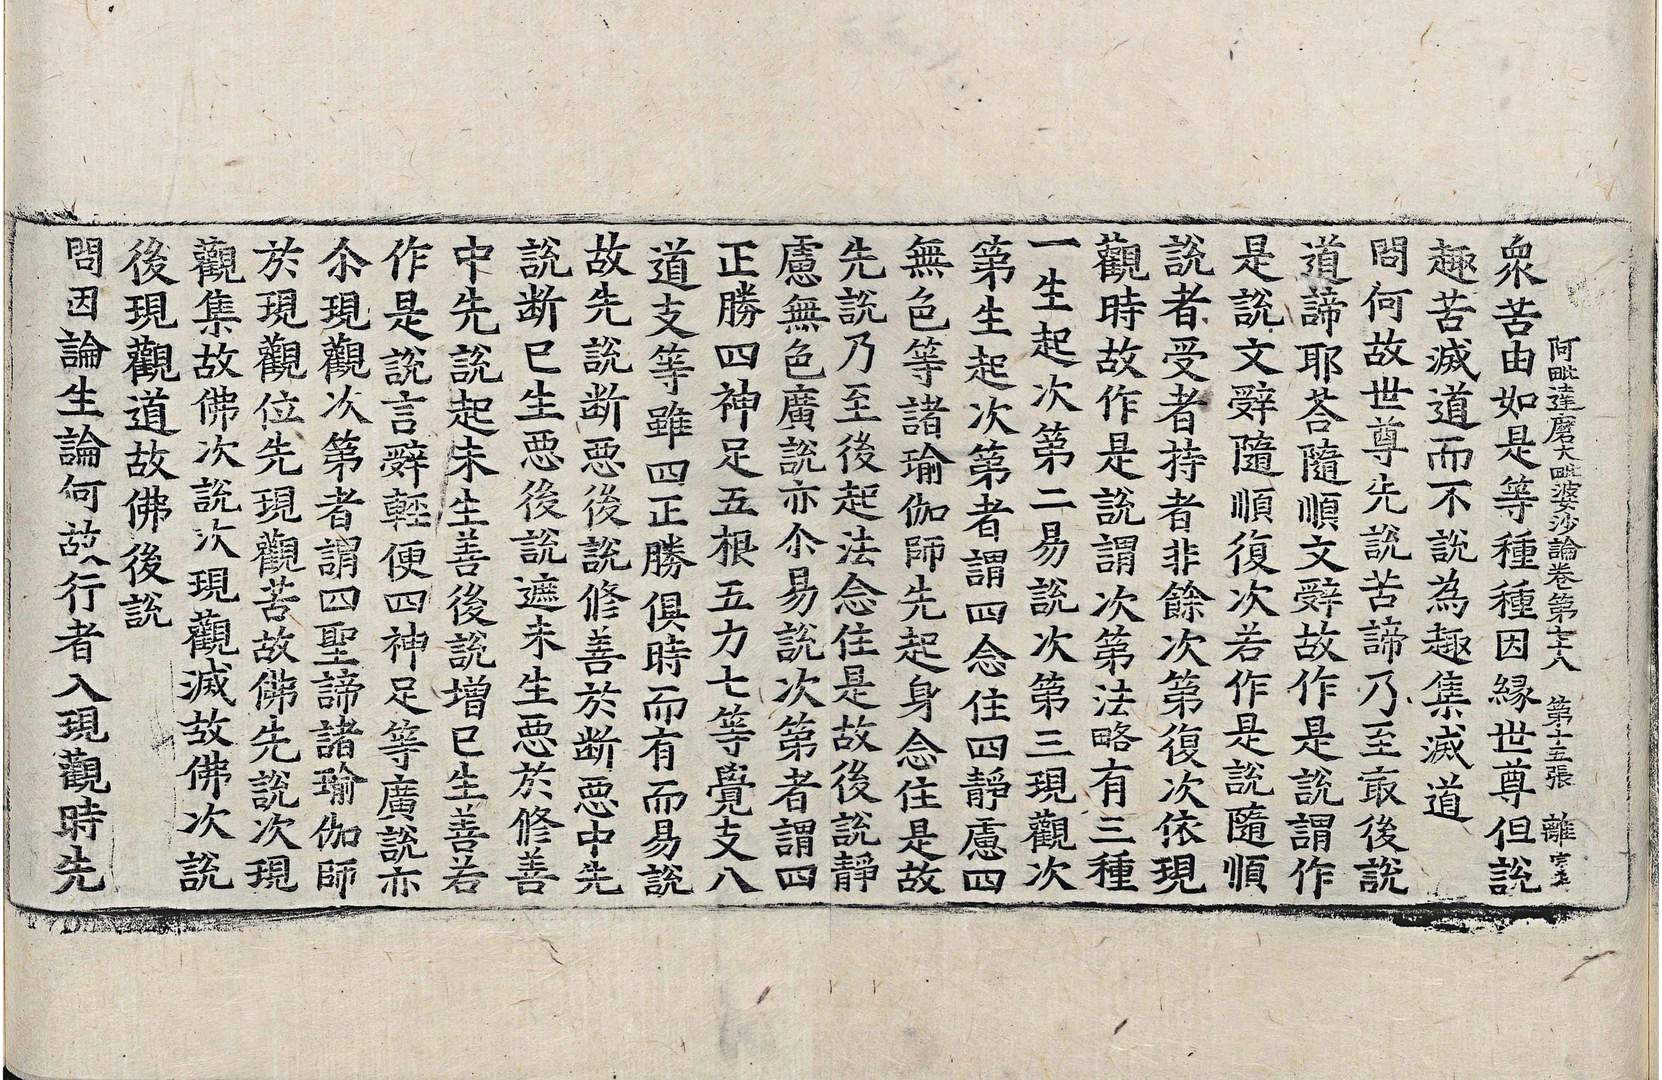 阿毗達磨大毗婆沙論卷第七十八　第十五張　離
衆苦由如是等種種因緣世尊但說
趣苦滅道而不說為趣集滅道
問何故世尊先說苦諦乃至㝡後說
道諦耶荅隨順文辭故作是說謂作
是說文辭隨順復次若作是說隨順
說者受者持者非餘次第復次依現
觀時故作是說謂次第法略有三種
一生起次第二易說次第三現觀次
第生起次第者謂四念住四靜慮四
無色等諸瑜伽師先起身念住是故
先說乃至後起法念住是故後說靜
慮無色廣說亦尒易說次第者謂四
正勝四神足五根五力七等覺支八
道支等雖四正勝俱時而有而易說
故先說斷惡後說修善於斷惡中先
說断已生惡後說遮未生惡於修善
中先說起未生善後說增已生善若
作是說言辭輕便四神足等廣說亦
尒現觀次第者謂四聖諦諸瑜伽師
於現觀位先現觀苦故佛先說次現
觀集故佛次說次現觀滅故佛次說
後現觀道故佛後說
問因論生論何故行者入現觀時先